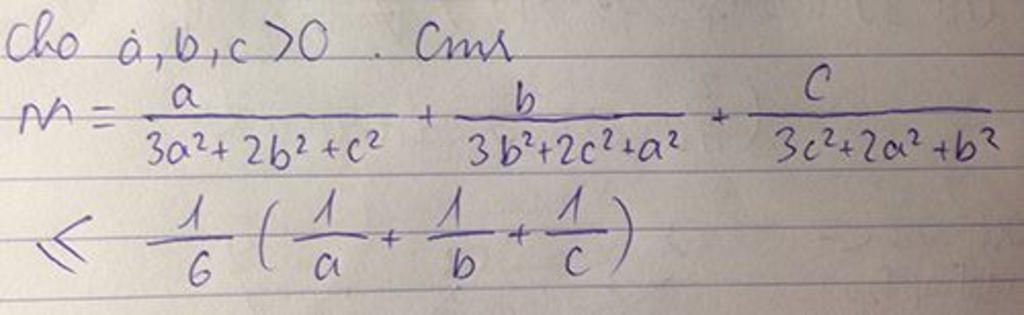 Cho a, b, c > 0 . Cmr
M = a/(3a² + 2b² + c²) + b/(3b² + 2c² + a²) + c/(3c² + 2a² + b²)
≤ 1/6 (1/a + 1/b + 1/c)